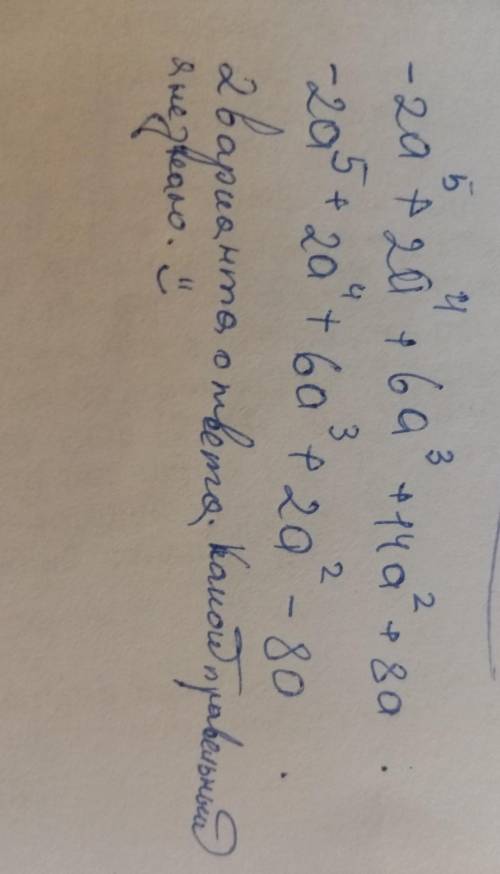 -2a⁵ + 2a⁴ + 6a³ + 14a² + 8a.
-2a⁵ + 2a⁴ + 6a³ + 2a² - 8a.
2 варианта ответа. Какой правельный
я не знаю. ¨⌣